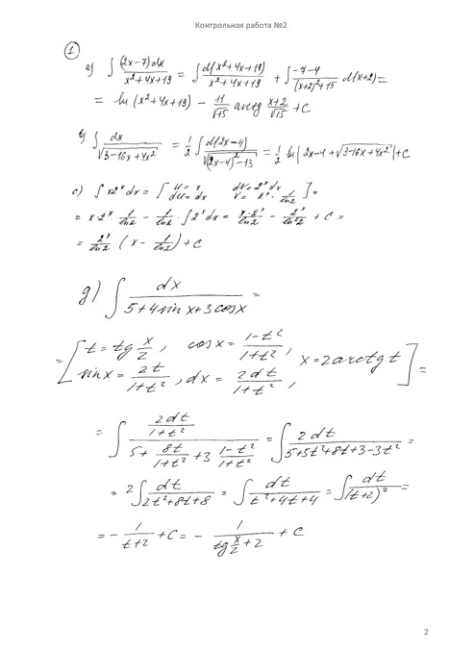 Контрольная работа №2
①
а) ∫ (2x-7)dx / x²+4x+19 = ∫ d(x²+4x+19) / x²+4x+19 + ∫ -7-4 / (x+2)²+15 d(x+2) =
= ln (x²+4x+19) - 11/√15 arctg x+2/√15 + C
в) ∫ dx / √3-16x+4x² = 1/2 ∫ d(2x-4) / √(2x-4)²-13 = 1/2 ln | 2x-4 + √3-16x+4x² | + C
с) ∫ x2ˣ dx = [ u = x dv = 2ˣ dx
du = dx v = 2ˣ · 1/ln2 ] =
= x·2ˣ 1/ln2 - 1/ln2 · ∫ 2ˣ dx = x·2ˣ/ln2 - 2ˣ/ln²2 + C =
= 2ˣ/ln2 (x - 1/ln2) + C
д) ∫ dx / 5+4sin x+3cosx =
= [ t = tg x/2, cosx = 1-t²/1+t², x = 2arctgt
sinx = 2t/1+t², dx = 2dt/1+t², ] =
= ∫ 2dt/1+t² / 5+ 8t/1+t² +3 1-t²/1+t² = ∫ 2dt / 5+5t²+8t+3-3t² =
= 2∫ dt / 2t²+8t+8 = ∫ dt / t²+4t+4 = ∫ dt / (t+2)² =
= - 1/t+2 + C = - 1 / tg x/2 +2 + C
2